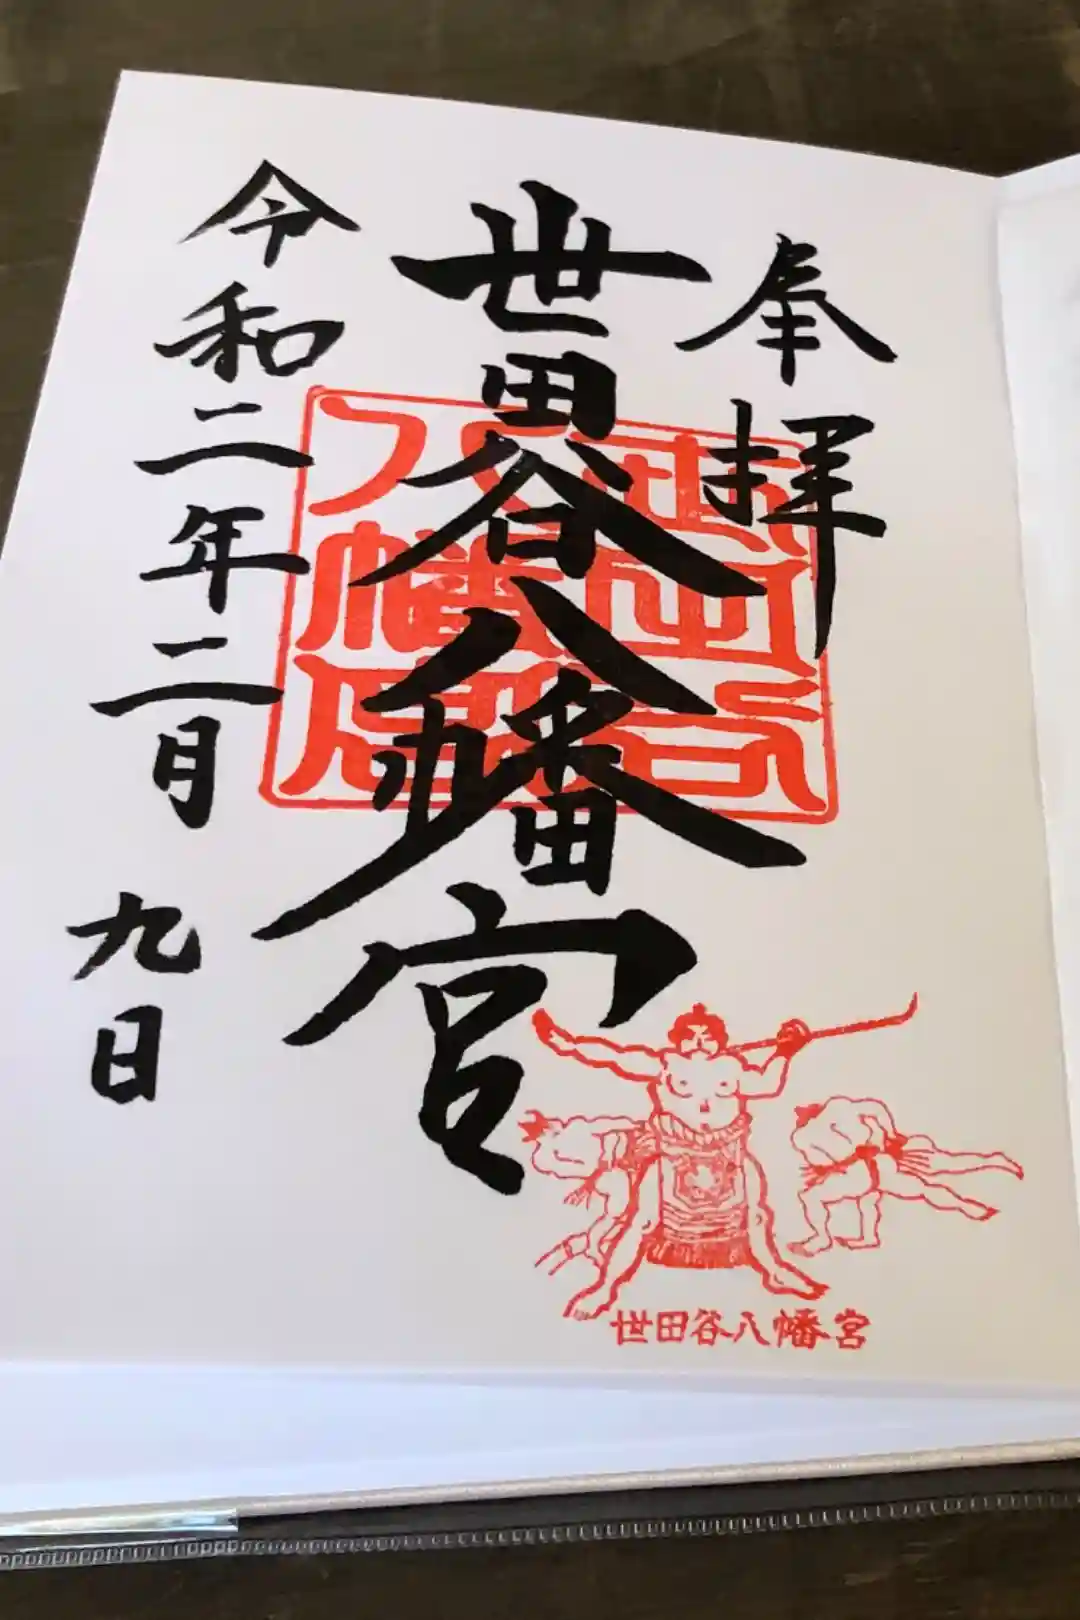 奉拝
世田谷八幡宮
世田谷
八幡宮
令和二年二月九日
世田谷八幡宮